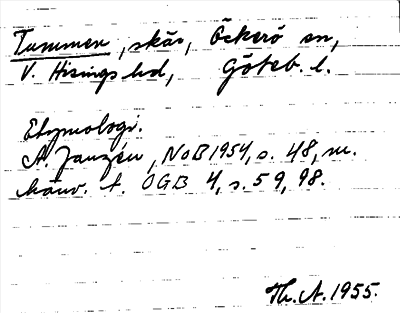 Tummen, skär, Öckerö sn,
V. Hisings hd, Göteb. l.
Etymologi.
A. Janzén, NoB 1954, s. 48, m.
hänv. t. OGB 4, s. 59, 98.
Th. A. 1955.